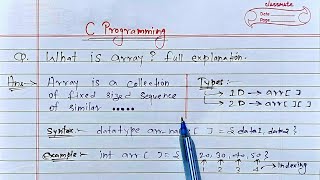 classmate
Date
Page
C Programming
Q. What is array? full explanation.
Ans:- Array is a collection
of fixed sized sequence
of similar .....
Types:-
1D → arr[ ]
2D → arr[ ][ ]
Syntax:- datatype arr name [ ] = { data1, data2 }
Example:- int arr[ ] = { 20, 30, 40, 50 }
1 2 3 4 → indexing